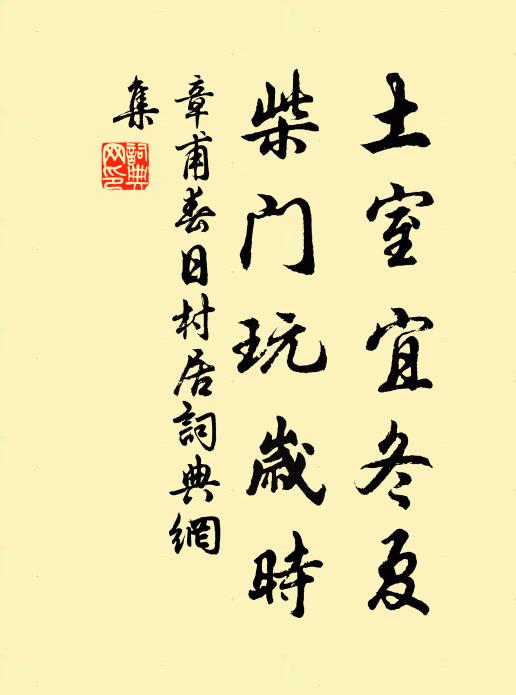 土室宜冬夏
柴門玩歲時
章甫春日村居詞典網
集
詞典網印